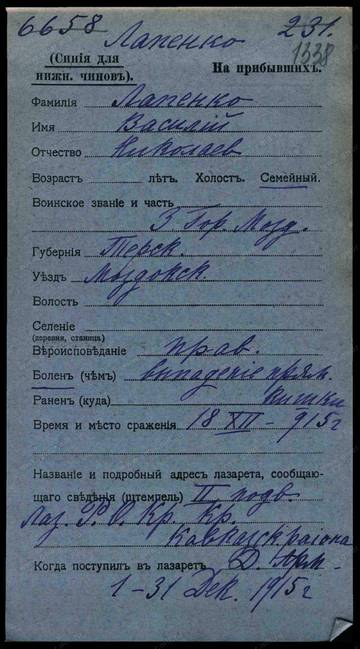 6658
231.
Лапенко
1338
(Синія для
нижн. чиновъ).
На прибывшихъ.
Фамилія Лапенко
Имя Василій
Отчество Николаев
Возрастъ лѣтъ. Холостъ. Семейный.
Воинское званіе и часть
3 Гор. Мозд.
Губернія Терск.
Уѣздъ Моздокск.
Волость
Селеніе
(деревня, станица)
Вѣроисповѣданіе прав.
Боленъ (чѣмъ) выпаденіе прям.
Раненъ (куда) кишки
Время и мѣсто сраженія 18 XII – 915 г
Названіе и подробный адресъ лазарета, сообщаю-
щаго свѣдѣнія (штемпель) II подв.
Лаз. Р. О. Кр. Кр.
Кавказск. района
Когда поступилъ въ лазаретъ Д. Арм.
1–31 Дек. 1915 г